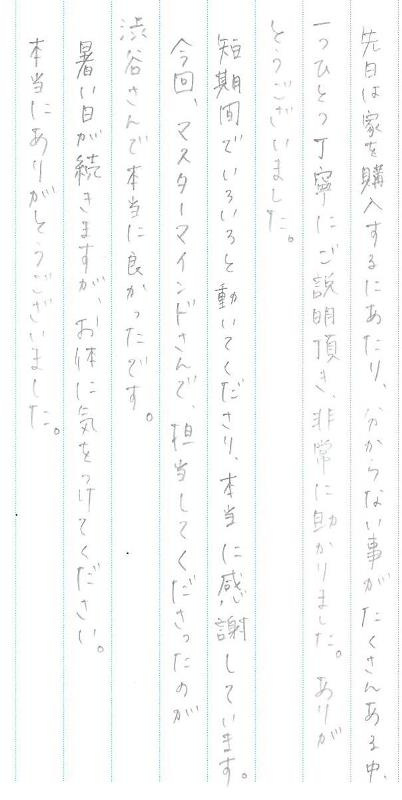 先日は家を購入するにあたり、分からない事がたくさんある中、
一つひとつ丁寧にご説明頂き、非常に助かりました。ありが
とうございました。
短期間でいろいろと動いてくださり、本当に感謝しています。
今回、マスターマインドさんで、担当してくださったのが
渋谷さんで本当に良かったです。
暑い日が続きますが、お体に気をつけてください。
本当にありがとうございました。